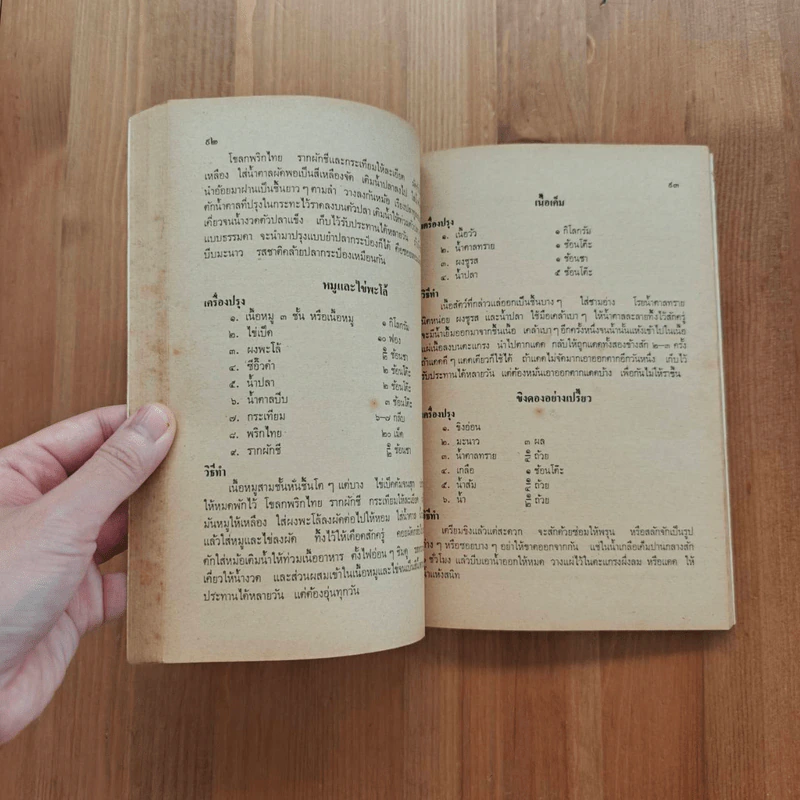 ๙๒
โขลกพริกไทย รากผักชีและกระเทียมให้ละเอียด
เหลือง ใส่น้ำตาลผัดพอเป็นสีเหลืองจัด เติมน้ำปลาลงไป
นำอ้อยมาผ่านเป็นชิ้นยาว ๆ ตามลำ วางลงก้นหม้อ เรียงปลา
ตักน้ำตาลที่ปรุงในกระทะไว้ราดลงบนตัวปลา เติมน้ำให้ท่วม
เคี่ยวจนน้ำงวดตัวปลาแข็ง เก็บไว้รับประทานได้หลายวัน
แบบธรรมดา จะนำมาปรุงแบบยำปลากระป๋องก็ได้ คือ
บีบมะนาว รสชาติคล้ายปลากระป๋องเหมือนกัน
หมูและไข่พะโล้
เครื่องปรุง
๑. เนื้อหมู ๓ ชั้น หรือเนื้อหมู ๑ กิโลกรัม
๒. ไข่เป็ด ๑๐ ฟอง
๓. ผงพะโล้ ช้อนชา
๔. ซีอิ๊วดำ ๒ ช้อนโต๊ะ
๕. น้ำปลา ๒ ช้อนโต๊ะ
๖. น้ำตาลปีบ ๓ ช้อนโต๊ะ
๗. กระเทียม ๖-๗ กลีบ
๘. พริกไทย ๒๐ เม็ด
๙. รากผักชี ช้อนชา
วิธีทำ
เนื้อหมูสามชั้นหั่นชิ้นโต ๆ แต่บาง ไข่เป็ดต้มจนสุก
ให้หมดพักไว้ โขลกพริกไทย รากผักชี กระเทียมให้ละเอียด
มันหมูให้เหลือง ใส่ผงพะโล้ลงผัดต่อไปให้หอม ใส่น้ำตาล
แล้วใส่หมูและไข่ลงผัด ทิ้งไว้ให้เดือดสักครู่
ตักใส่หม้อเติมน้ำให้ท่วมเนื้ออาหาร ตั้งไฟอ่อน ๆ
เคี่ยวให้น้ำงวด และส่วนผสมเข้าในเนื้อหมูและไข่จน
ประทานได้หลายวัน แต่ต้องอุ่นทุกวัน
๙๓
เนื้อเค็ม
เครื่องปรุง
๑. เนื้อวัว ๑ กิโลกรัม
๒. น้ำตาลทราย ๑ ช้อนโต๊ะ
๓. ผงชูรส ๑ ช้อนชา
๔. น้ำปลา ๕ ช้อนโต๊ะ
วิธีทำ
เนื้อสัตว์ที่กล่าวแล่ออกเป็นชิ้นบาง ๆ ใส่ชามอ่าง โรยน้ำตาลทราย
นิดหน่อย ผงชูรส และน้ำปลา ใช้มือเคล้าเบา ๆ ให้น้ำตาลละลายทิ้งไว้สักครู่
จะมีน้ำเยิ้มออกมาจากชิ้นเนื้อ เคล้าเบา ๆ อีกครั้งหนึ่งจนน้ำนั้นแห้งเข้าไปในเนื้อ
แผ่เนื้อลงบนตะแกรง นำไปตากแดด กลับให้ถูกแดดทั้งสองข้างสัก ๒-๓ ครั้ง
ถ้าแดดดี ๆ แดดเดียวก็ใช้ได้ ถ้าแดดไม่จัดมากเอาออกตากอีกวันหนึ่ง เก็บไว้
รับประทานได้หลายวัน แต่ต้องหมั่นเอาออกตากแดดบ้าง เพื่อกันไม่ให้ราขึ้น
ขิงดองอย่างเปรี้ยว
เครื่องปรุง
๑. ขิงอ่อน
๒. มะนาว ๓ ผล
๓. น้ำตาลทราย ถ้วย
๔. เกลือ ๑ ช้อนโต๊ะ
๕. น้ำส้ม ถ้วย
๖. น้ำ ถ้วย
วิธีทำ
เตรียมขิงแล้วแต่สะดวก จะสักด้วยซ่อมให้พรุน หรือสลักจักเป็นรูป
ต่าง ๆ หรือซอยบาง ๆ อย่าให้ขาดออกจากกัน แช่ในน้ำเกลือเค็มปานกลางสัก
ชั่วโมง แล้วบีบเอาน้ำออกให้หมด วางแผ่ไว้ในตะแกรงผึ่งลม หรือแดด ให้
น้ำแห้งสนิท